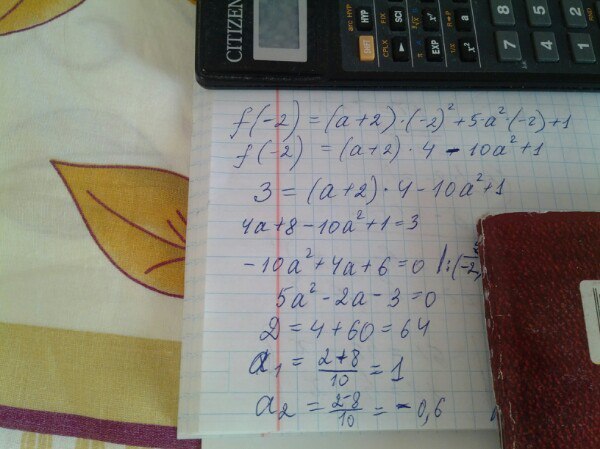 CITIZEN
f(-2) = (a+2)·(-2)²+5·a²·(-2)+1
f(-2) = (a+2)·4-10a²+1
3 = (a+2)·4-10a²+1
4a+8-10a²+1=3
-10a²+4a+6=0 |:(-2)
5a²-2a-3=0
D=4+60=64
a₁ = (2+8)/10 = 1
a₂ = (2-8)/10 = -0,6